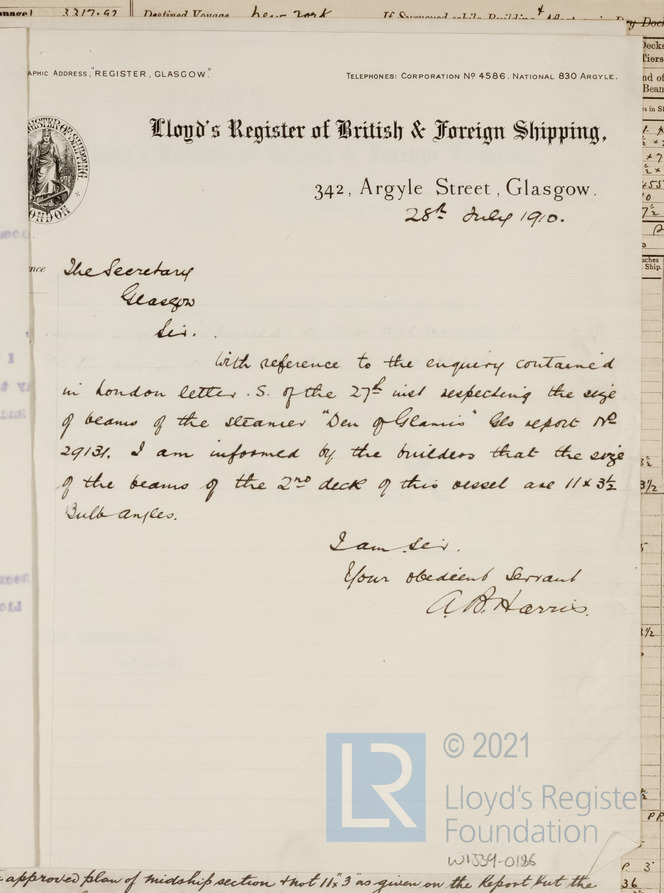 3317.92 Destined Voyage New York If Surveyed while Building
APHIC ADDRESS, "REGISTER, GLASGOW." TELEPHONES: CORPORATION Nº 4586. NATIONAL 830 ARGYLE.
Lloyd's Register of British & Foreign Shipping,
342, Argyle Street, Glasgow.
28th July 1910.
The Secretary
Glasgow
Sir.
With reference to the enquiry contained
in London letter .S. of the 27th inst respecting the size
of beams of the steamer "Den of Glamis" Gls report Nº
29131. I am informed by the builders that the size
of the beams of the 2nd deck of this vessel are 11 x 3½
Bulb angles.
I am Sir.
Your obedient Servant
A.B. Harris.
LR
© 2021
Lloyd's Register
Foundation
W1339-0186
approved plan of midship section & not 11" x 3" as given on the Report But the